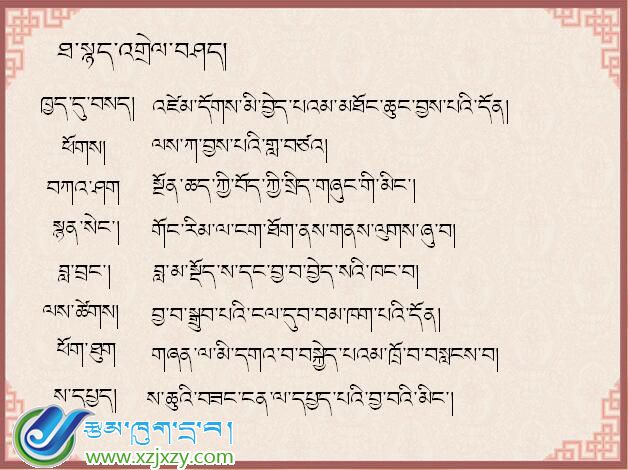 ཐ་སྙད་འགྲེལ་བཤད།
ཁྱད་དུ་བསད། འཛེམ་དོགས་མི་བྱེད་པའམ་མཐོང་ཆུང་བྱས་པའི་དོན།
ཕོགས། ལས་ཀ་བྱས་པའི་གླ་བཙའ།
བཀའ་ཤག སྔོན་ཆད་ཀྱི་བོད་ཀྱི་སྲིད་གཞུང་གི་མིང་།
སྙན་སེང་། གོང་རིམ་ལ་ངག་ཐོག་ནས་གནས་ལུགས་ཞུ་བ།
བླ་བྲང་། བླ་མ་སྡོད་ས་དང་བྱ་བ་བྱེད་སའི་ཁང་བ།
ལས་ཚོགས། བྱ་བ་སྒྲུབ་པའི་ངལ་དུབ་བམ་ཁག་པའི་དོན།
ཕོག་ཐུག གཞན་ལ་མི་དགའ་བ་བསྐྱེད་པའམ་ཁྲོ་བ་བསླངས་བ།
ས་དཔྱད། ས་ཆུའི་བཟང་ངན་ལ་དཔྱད་པའི་བྱ་བའི་མིང་།
རྩམ་ཁུག་དྲ་བ།
www.xzjxzy.com